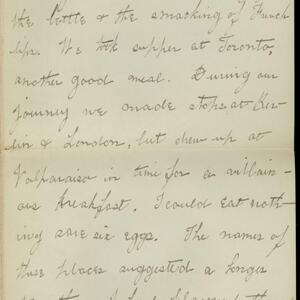 the bottle & the smacking of French
lips. We took supper at Toronto,
another good meal. During our
journey we made stops at Ber-
lin & London, but drew up at
Valparaiso in time for a villain-
ous breakfast. I could eat noth-
ing save six eggs. The names of
these places suggested a longer